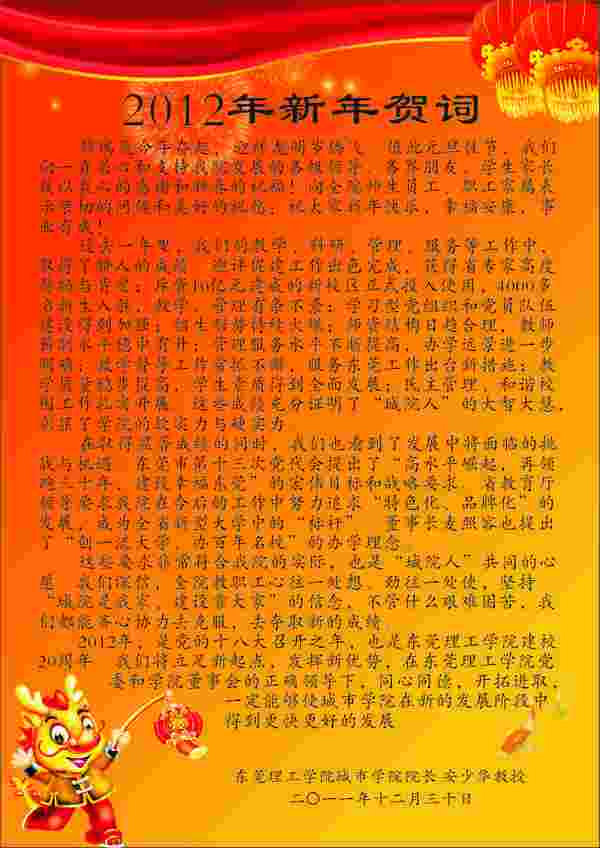 2012年新年贺词
值此元旦佳节，我们
向一直关心和支持我院发展的各级领导、各界朋友、学生家长
致以衷心的感谢和新春的祝福！向全院师生员工、职工家属表
示亲切的问候和美好的祝愿，祝大家新年快乐，幸福安康，事
业有成！
过去一年里，我们的教学、科研、管理、服务等工作中，
取得了骄人的成绩。迎评促建工作出色完成，获得省专家高度
10亿元建成的新校区正式投入使用，4000多
名新生入驻，教学、管理有条不紊；学习型党组织和党员队伍
建设得到加强；招生形势持续火爆；师资结构日趋合理，教师
科研水平稳中有升；管理服务水平不断提高，办学远景进一步
明确；教学督导工作常抓不懈，服务东莞工作出台新措施；教
学质量稳步提高，学生素质得到全面发展；民主管理，和谐校
园工作扎实开展。这些成绩充分证明了“城院人”的大智大慧，
彰显了学院的软实力与硬实力。
在取得显著成绩的同时，我们也看到了发展中将面临的挑
战与机遇。东莞市第十三次党代会提出了“高水平崛起，再领
跑三十年，建设幸福东莞”的宏伟目标和战略要求。省教育厅
领导要求我院在今后的工作中努力追求“特色化、品牌化”的
发展，成为全省新型大学中的“标杆”。董事长麦照容也提出
了“创一流大学、办百年名校”的办学理念。
这些要求非常符合我院的实际，也是“城院人”共同的心
愿。我们深信，全院教职工心往一处想、劲往一处使，坚持
“城院是我家，建设靠大家”的信念，不管什么艰难困苦，我
们都能齐心协力去克服，去夺取新的成绩。
2012年，是党的十八大召开之年，也是东莞理工学院建校
20周年。我们将立足新起点，发挥新优势，在东莞理工学院党
委和学院董事会的正确领导下，同心同德，开拓进取，
一定能够使城市学院在新的发展阶段中
得到更快更好的发展。
东莞理工学院城市学院院长 安少华教授
二〇一一年十二月三十日